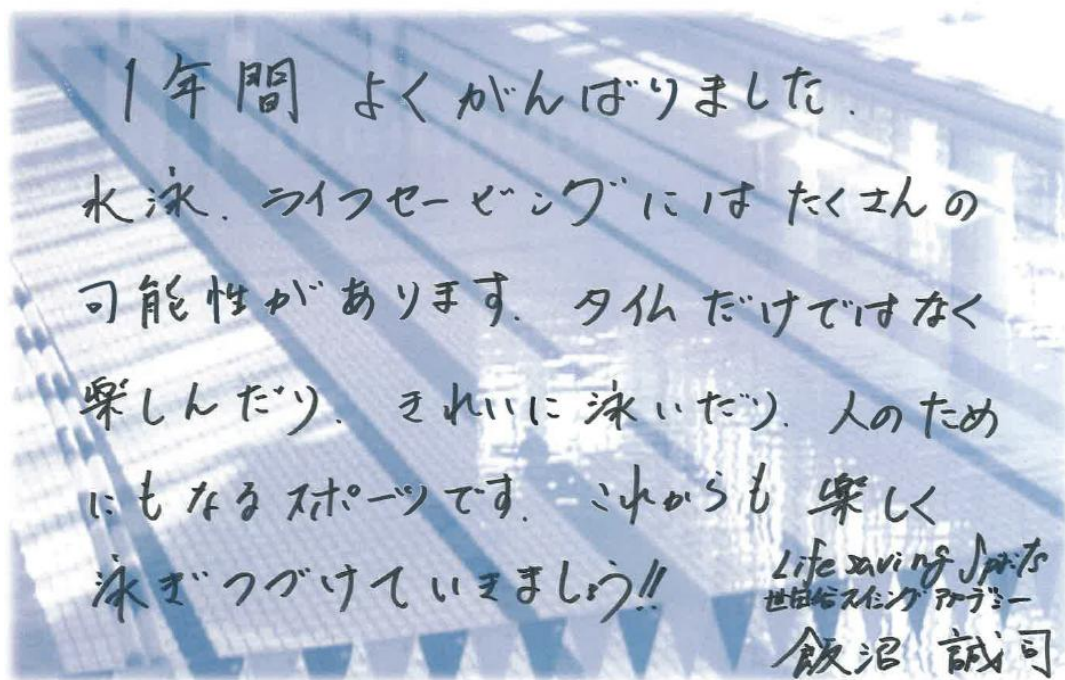 1年間 よくがんばりました.
水泳. ライフセービングにはたくさんの
可能性があります. タイムだけではなく
楽しんだり. きれいに泳いだり. 人のため
にもなるスポーツです. これからも 楽しく
泳ぎつづけていきましょう!!
Life saving Sports
世田谷スイミングアカデミー
飯沼 誠司